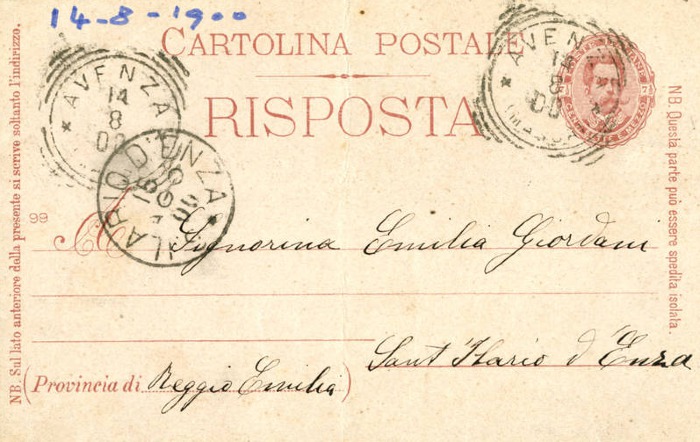 14-8-1900
CARTOLINA POSTALE
RISPOSTA
AVENZA
14
8
00
AVENZA
14
8
00
ILARIO D'ENZA
99
A
Signorina Emilia Giordani
Sant Ilario d'Enza
(Provincia di Reggio Emilia)
NB. Sul lato anteriore della presente si scrive soltanto l'indirizzo.
NB. Questa parte può essere spedita isolata.